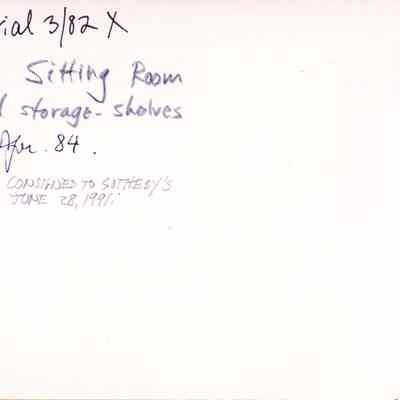 rial 3/82 X
Sitting Room
storage-shelves
Apr. 84.
CONSIGNED TO SOTHEBY'S
JUNE 28, 1991.